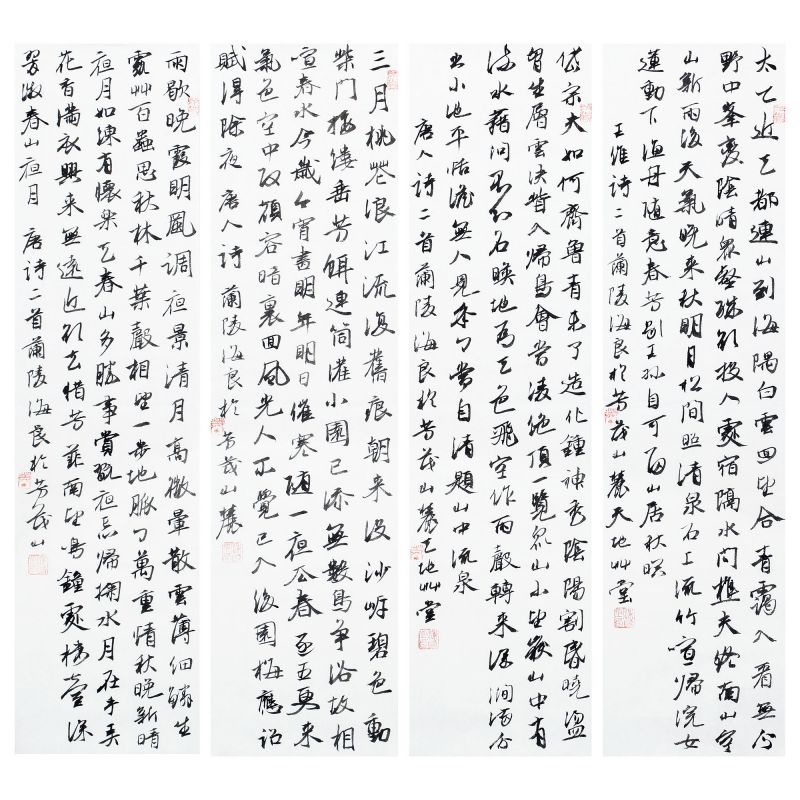 太乙近天都連山到海隅白雲回望合青靄入看無分
野中峯變陰晴衆壑殊欲投人處宿隔水問樵夫終南山空
山新雨後天氣晚來秋明月松間照清泉石上流竹喧歸浣女
蓮動下漁舟隨意春芳歇王孫自可留山居秋暝
王維詩二首蘭陵海良於芳茂山麓天地艸堂
岱宗夫如何齊魯青未了造化鍾神秀陰陽割昏曉盪
胷生層雲決眥入歸鳥會當凌絕頂一覽衆山小望嶽山中有
流水藉問不知名暎地為天色飛空作雨聲轉來深澗滿分
出小池平恬澹無人見年々常自清題山中流泉
唐人詩二首蘭陵海良於芳茂山麓天地艸堂
三月桃花浪江流復舊痕朝來沒沙岸碧色動
柴門接縷垂芳餌連筒灌小園已添無數鳥爭浴故相
喧春水今歲今宵盡明年明日催寒隨一夜去春逐五更來
氣色空中改顏容暗裏回風光人不覺已入後園梅應詔
賦得除夜 唐人詩 蘭陵海良於芳茂山麓
雨歇晚霞明風調夜景清月高微暈散雲薄細鱗生
露艸百蟲思秋林千葉聲相望一步地脈々萬重情秋晚新晴
夜月如練有懷樂天春山多勝事賞翫夜忘歸掬水月在手弄
花香滿衣興來無遠近欲去惜芳菲南望鳴鐘處樓臺深
翠微春山夜月 唐詩二首蘭陵海良於芳茂山